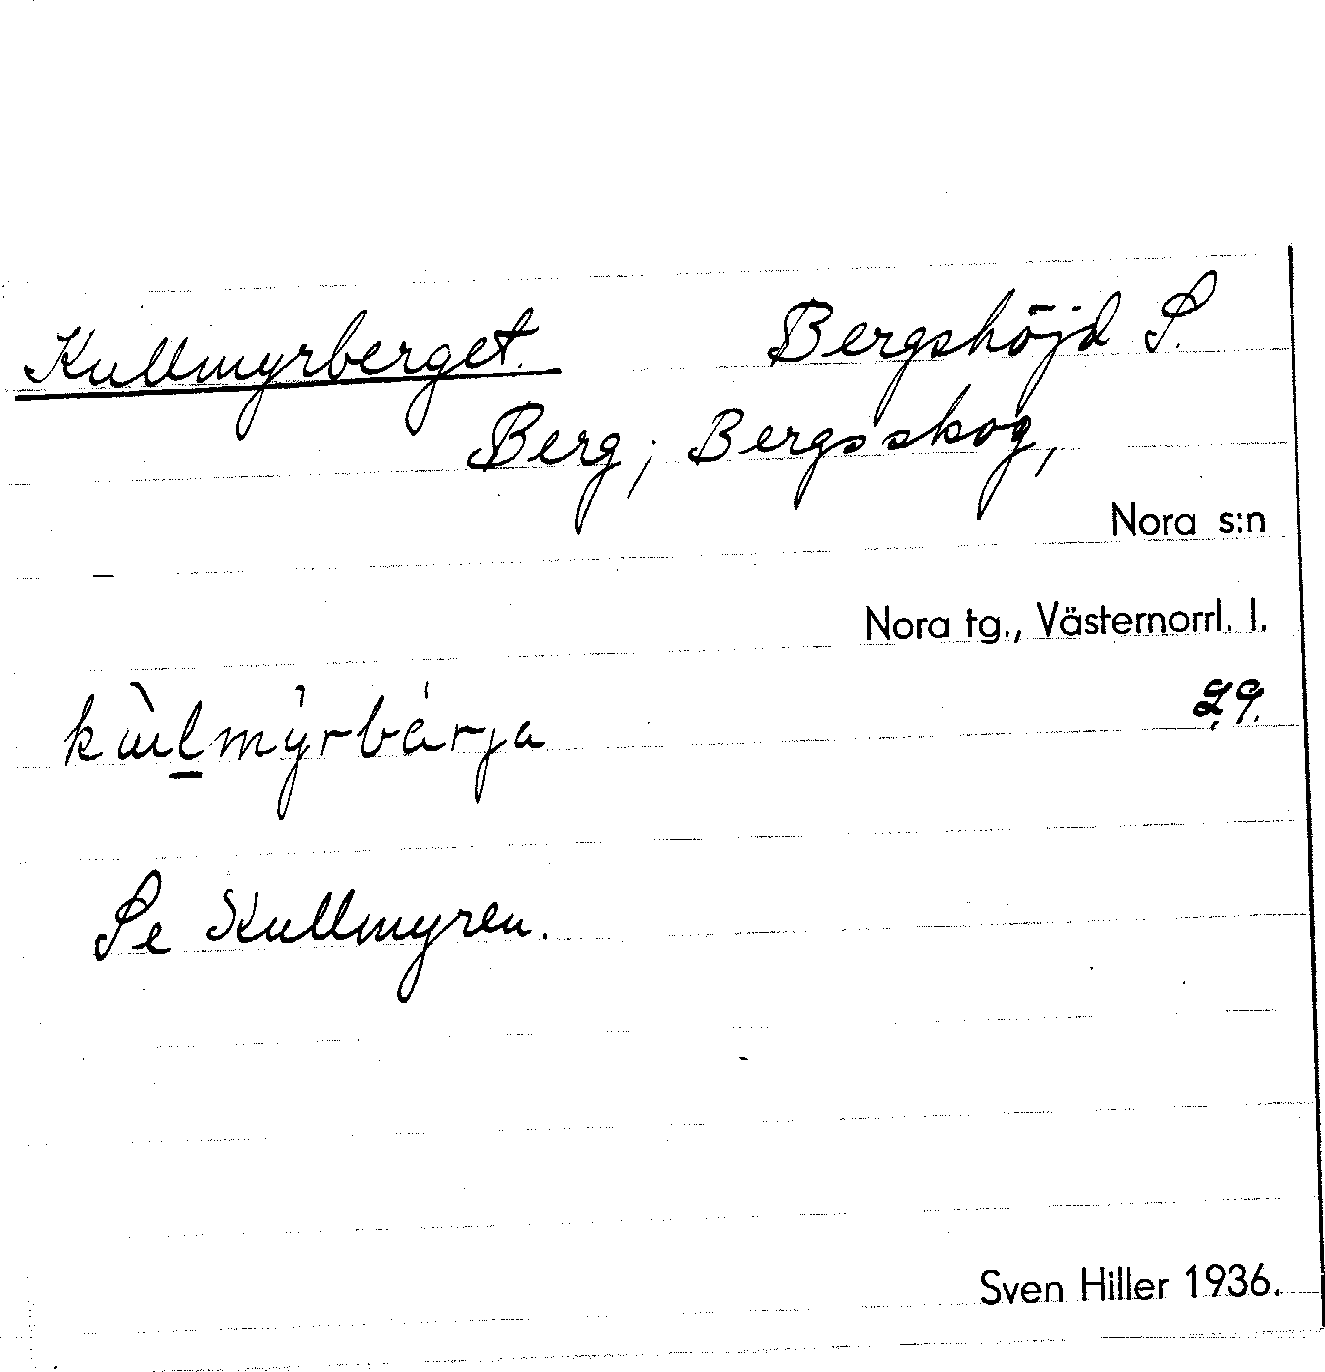 Kullmyrberget. Bergshöjd S.
Berg; Bergsskog,
Nora s:n
Nora tg., Västernorrl. l.
29.
Se Kullmyren.
Sven Hiller 1936.